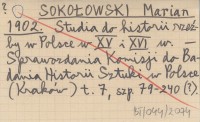 ? SOKOŁOWSKI Marian
1902. Studia do historii rzeź
by w Polsce w XV i XVI w.
Sprawozdania Komisji do Ba
dania Historii Sztuki w Polsce
(Kraków) t. 7, szp. 79-240 (?).